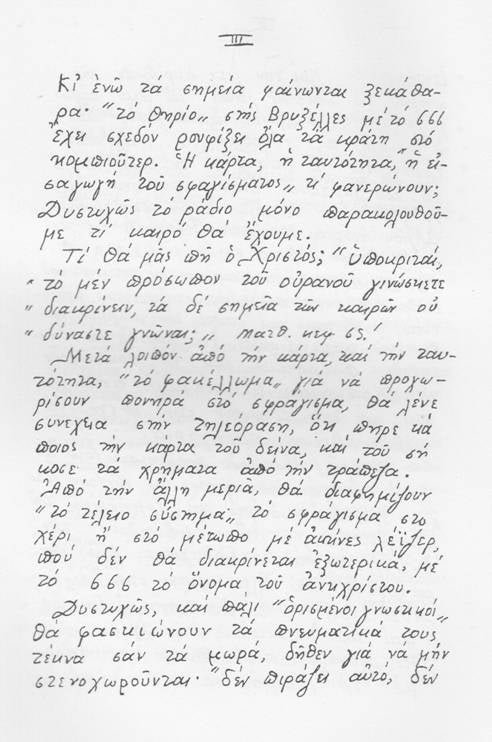 III
Κι' ἐνῶ τά σημεία φαίνωνται ξεκάθα-
ρα· "τό θηρίο" στής Βρυξέλλες μέ τό 666
ἔχει σχεδόν ρουφίξει ὅλα τά κράτη στό
κομπιοῦτερ. Ἡ κάρτα, ἡ ταυτότητα, "ἡ εἰ-
σαγωγή τοῦ σφαγίσματος" τί φανερώνουν;
Δυστυχῶς τό ράδιο μόνο παρακολουθοῦ-
με τί καιρό θά ἔχουμε.
Τί θά μᾶς πῆ ὁ Χριστός; "ὑποκριταί,
"τό μέν πρόσωπον τοῦ οὐρανοῦ γινώσκετε
"διακρίνειν, τά δέ σημεῖα τῶν καιρῶν οὐ
"δύναστε γνῶναι;" Ματθ. κεφ ς5.!
Μετά λοιπόν ἀπό τήν κάρτα, καί τήν ταυ-
τότητα, "τό φακέλλωμα" γιά νά προχω-
ρίσουν πονηρά στό σφράγισμα, θά λένε
συνεχεια στήν τηλεόραση, ὅτι πηρε κά
ποιος τήν κάρτα τοῦ δείνα, καί τοῦ σή
κοσε τά χρήματα ἀπό τήν τράπεζα.
Ἀπό τήν ἄλλη μεριά, θά διαφημίζουν
"τό τέλειο σύστημα" τό σφράγισμα στο
χέρι ἤ στό μέτωπο μέ ἀκτίνες λέϊζερ,
πού δέν θά διακρίνεται ἐξωτερικά, μέ
τό 666 τό ὄνομα τοῦ ἀντιχρίστου.
Δυστυχῶς, καί πάλι "ὁρισμένοι γνωστικοί"
θά φασκιώνουν τά πνευματικά τους
τέκνα σάν τά μωρά, δῆθεν γιά νά μήν
στενοχωροῦνται· "δέν πιράζει αὐτό, δέν